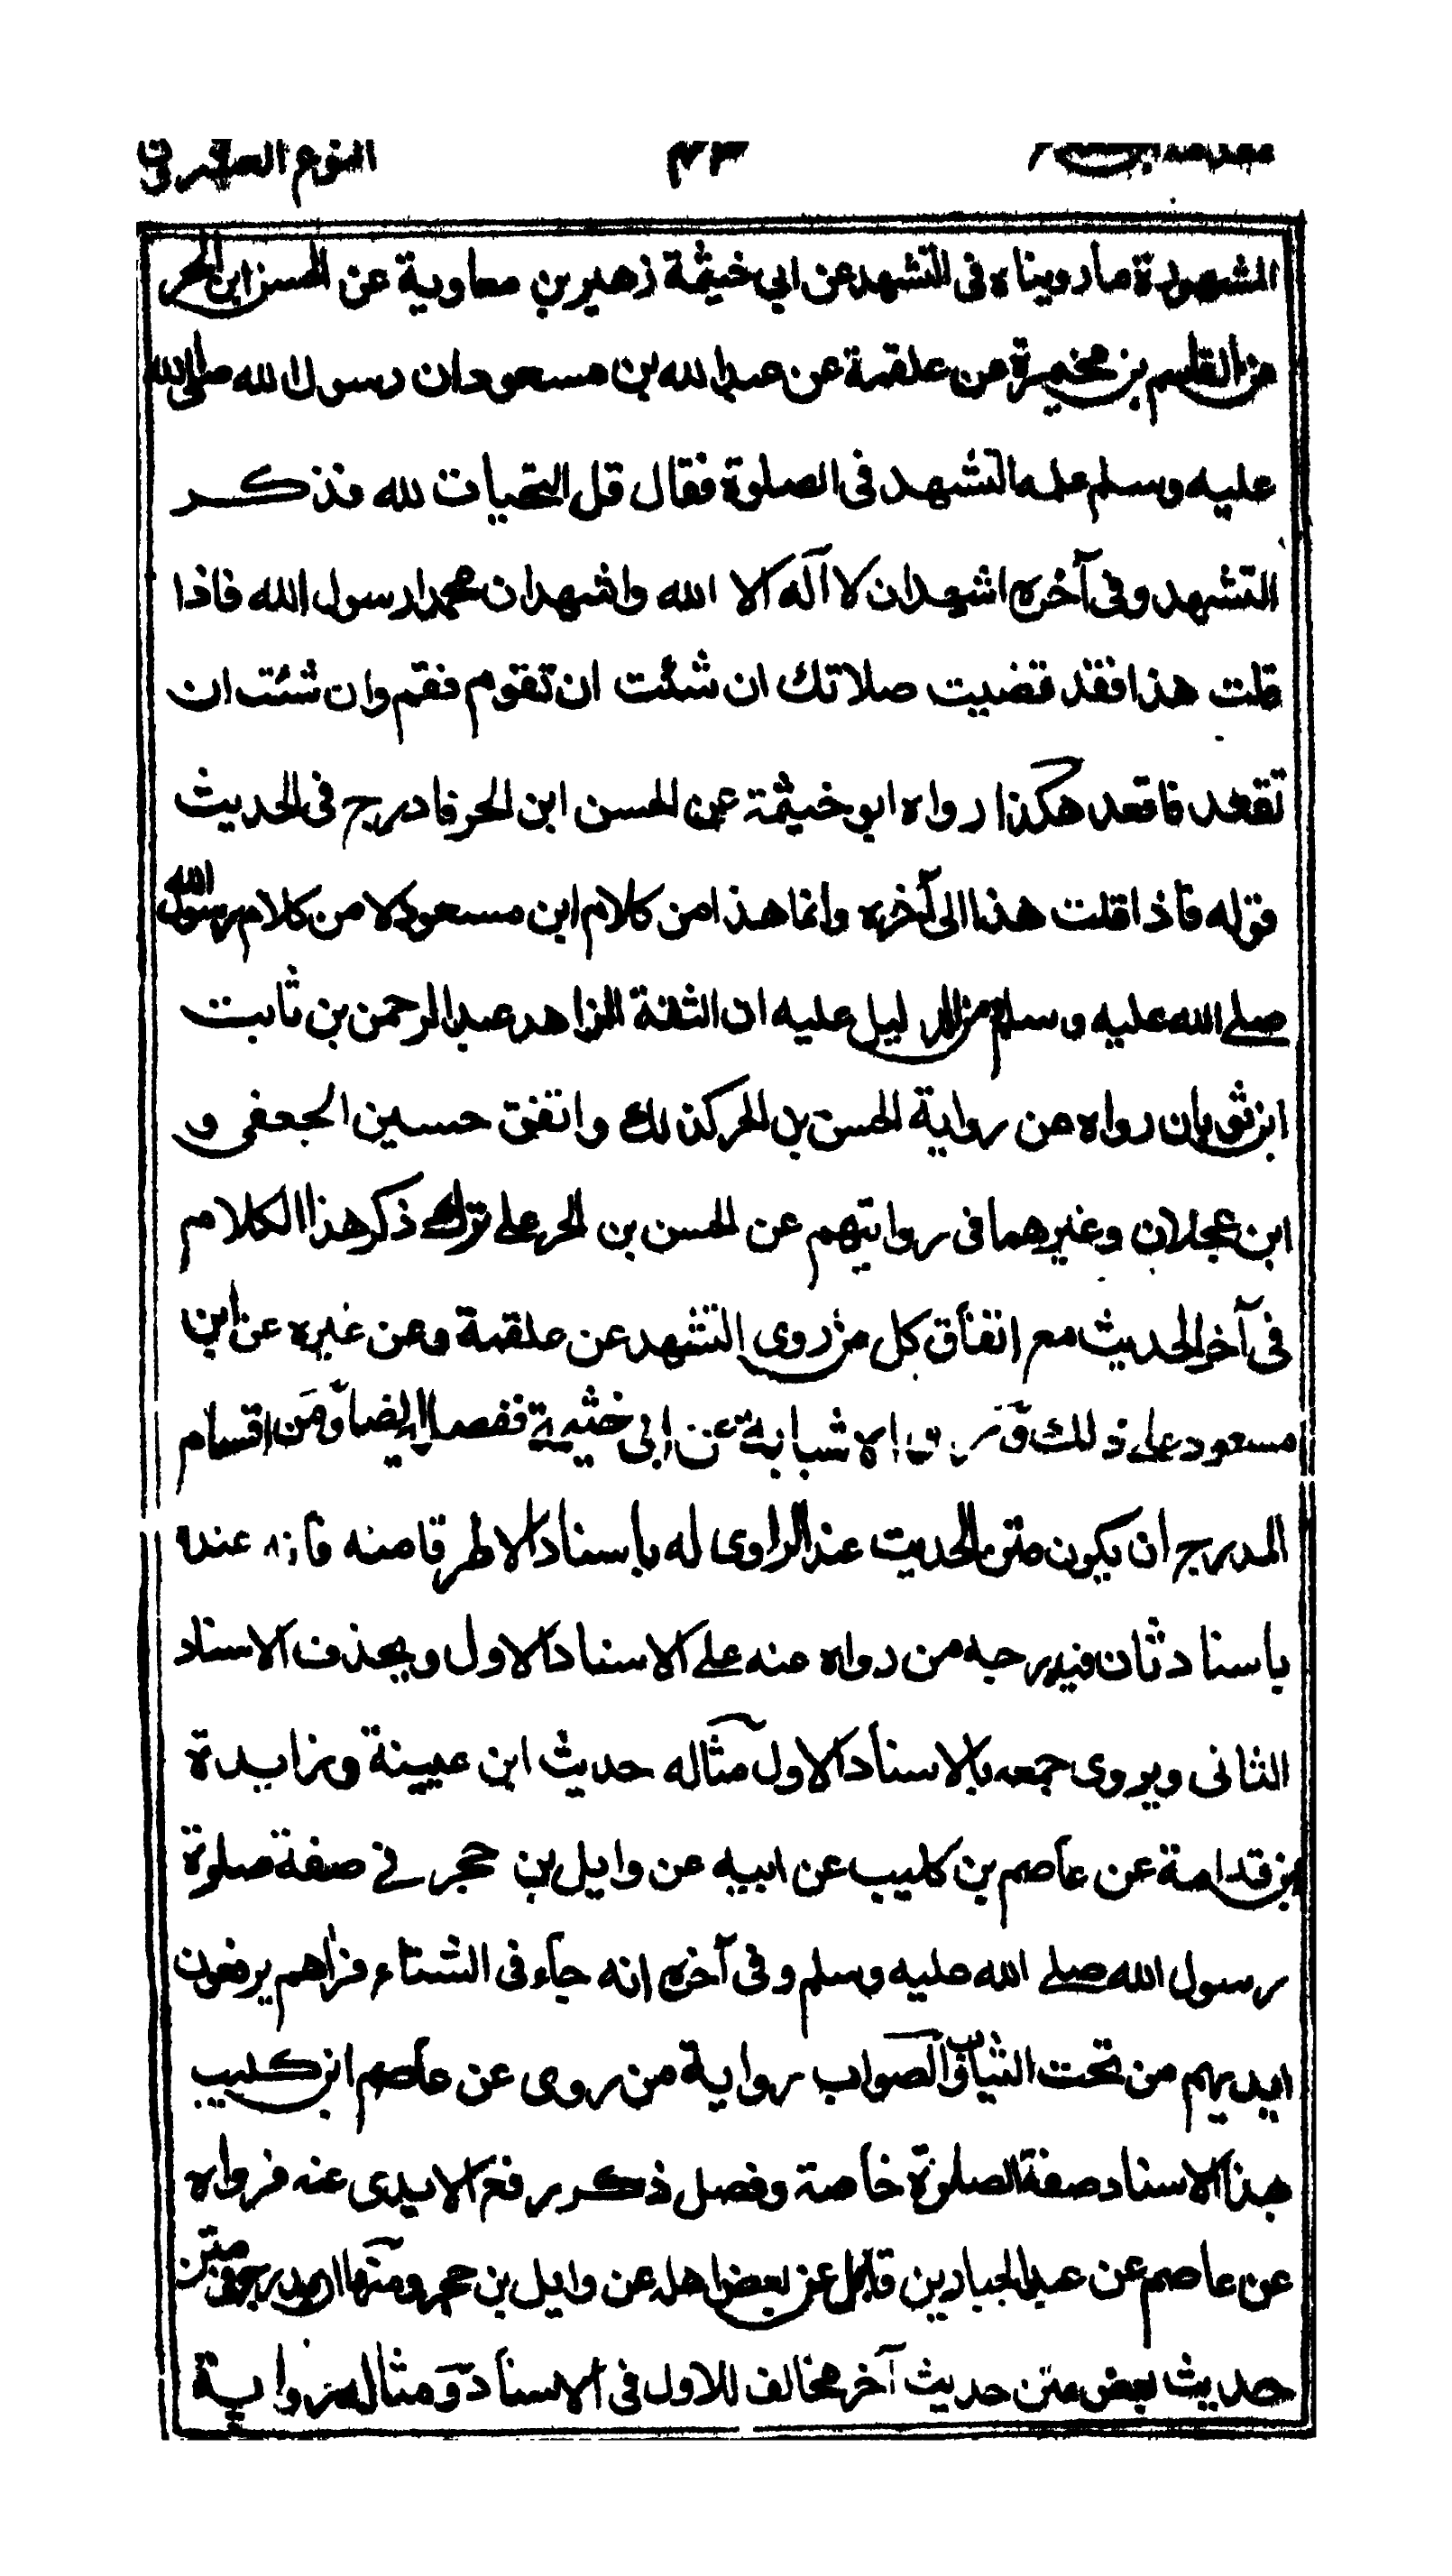 النوع العشرون ٤٣ مقدمة ابن
المشهورة ما رويناه فى التشهد عن ابي خيثمة زهير بن معاوية عن الحسن ابن الحر
عن القاسم بن مخيمرة عن علقمة عن عبد الله بن مسعود ان رسول الله صلى الله
عليه وسلم علمه التشهد فى الصلوة فقال قل التحيات لله فذكر
التشهد وفى آخره اشهد ان لا اله الا الله واشهد ان محمدا رسول الله فاذا
قلت هذا فقد قضيت صلاتك ان شئت ان تقوم فقم وان شئت ان
تقعد فاقعد هكذا رواه ابو خيثمة عن الحسن ابن الحر فادرج فى الحديث
قوله فاذا قلت هذا الى آخره وانما هذا من كلام ابن مسعود لا من كلام رسول الله
صلى الله عليه وسلم من الدليل عليه ان الثقة الزاهد عبد الرحمن بن ثابت
ابن ثوبان رواه عن رواية الحسن بن الحر كذلك واتفق حسين الجعفى و
ابن عجلان وغيرهما فى روايتهم عن الحسن بن الحر على ترك ذكر هذا الكلام
فى آخر الحديث مع اتفاق كل من روى التشهد عن علقمة وعن غيره عن ابن
مسعود على ذلك و شبابة عن ابى خثيمة ففصله ايضا ومن اقسام
المدرج ان يكون متن الحديث عند الراوى له باسناد الا طرفا منه فانه عنده
باسناد ثان فيدرجه من رواه عنه على الاسناد الاول ويحذف الاسناد
الثانى ويروى جمعه بالاسناد الاول مثاله حديث ابن عيينة وزايدة
بن قدامة عن عاصم بن كليب عن ابيه عن وايل بن حجر فى صفة صلوة
رسول الله صلى الله عليه وسلم وفى آخره انه جاء فى الشتاء فراهم يرفعون
ايديهم من تحت الثياب والصواب رواية من روى عن عاصم ابن كليب
بهذا الاسناد صفة الصلوة خاصة وفصل ذكر رفع الايدى عنه فرواه
عن عاصم عن عبد الجبار بن وايل عن بعض اهله عن وايل بن حجر ومنها ان يدرج فى متن
حديث بعض متن حديث آخر مخالف للاول فى الاسناد ومثاله رواية